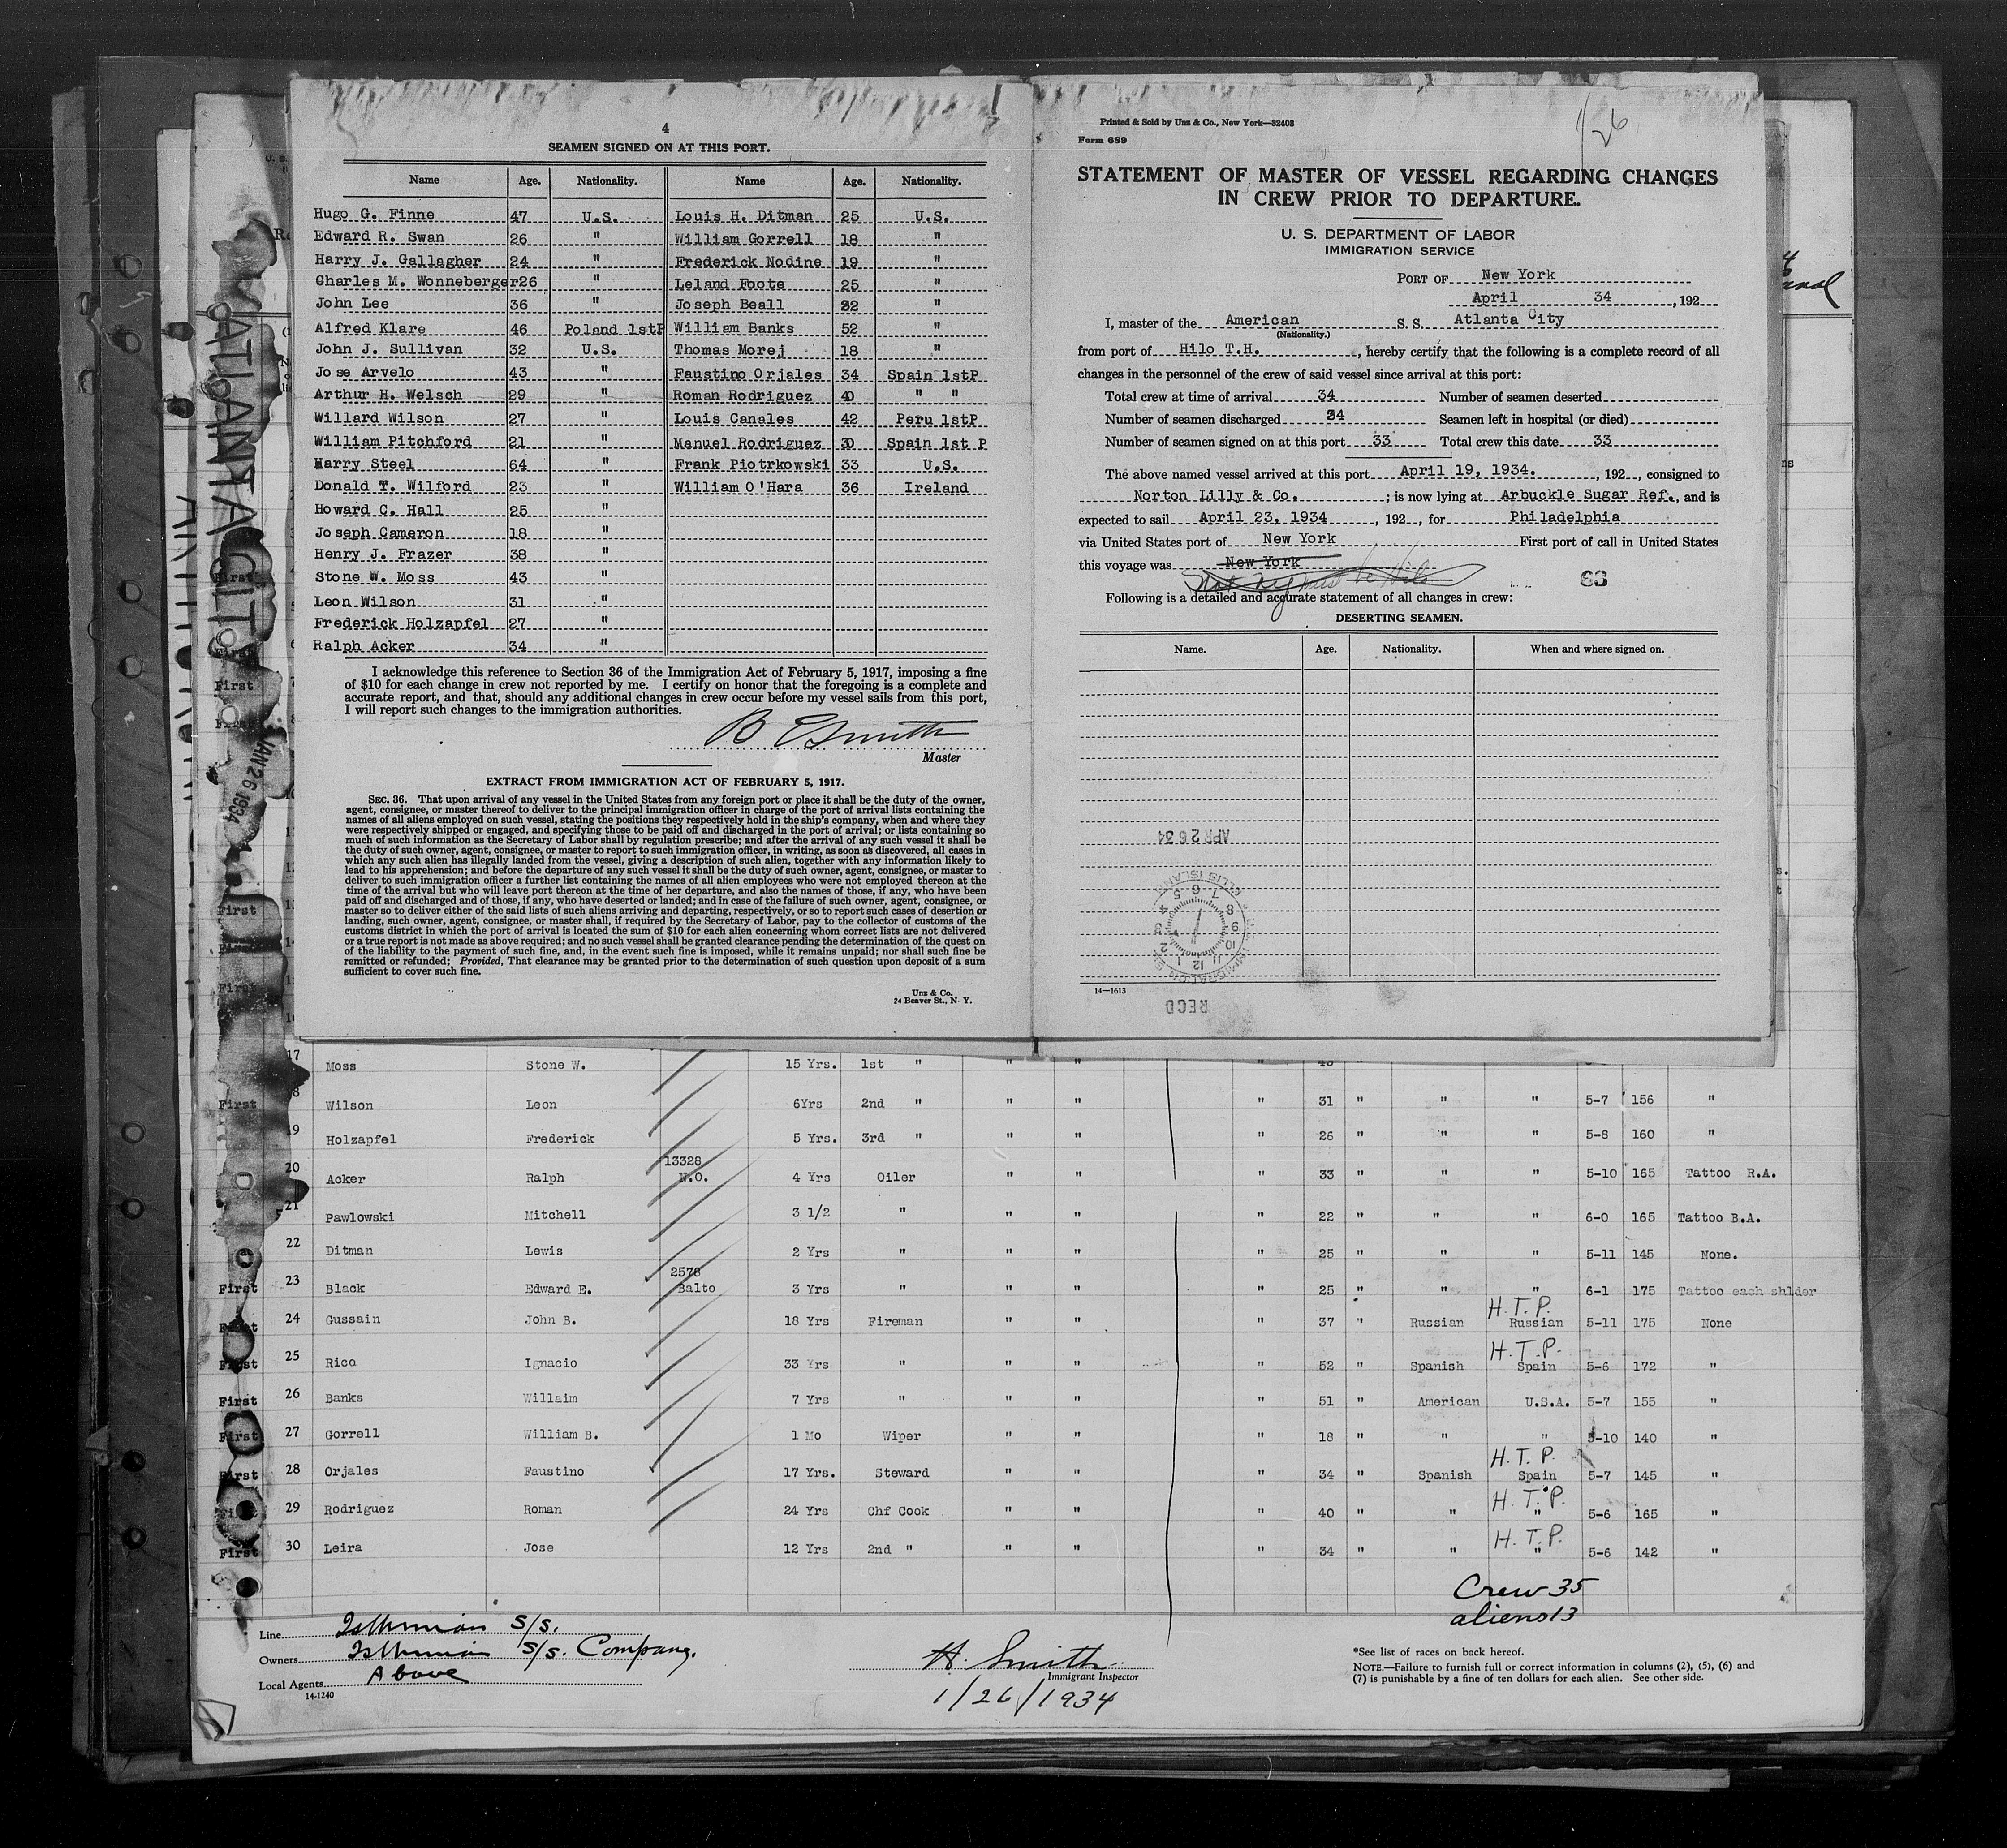 4
SEAMEN SIGNED ON AT THIS PORT.
Name Age. Nationality. Name Age. Nationality.
Hugo G. Finne 47 U.S. Louis H. Ditman 25 U.S.
Edward R. Swan 26 " William Gorrell 18 "
Harry J. Gallagher 24 " Frederick Nodine 19 "
Charles M. Wonneberger 26 " Leland Foote 25 "
John Lee 36 " Joseph Beall 32 "
Alfred Klare 46 Poland 1stP William Banks 52 "
John J. Sullivan 32 U.S. Thomas Morej 18 "
Jose Arvelo 43 " Faustino Orjales 34 Spain 1stP
Arthur H. Welsch 29 " Roman Rodriguez 40 " "
Willard Wilson 27 " Louis Canales 42 Peru 1stP
William Pitchford 21 " Manuel Rodriguez 30 Spain 1st P
Harry Steel 64 " Frank Piotrkowski 33 U.S.
Donald T. Wilford 23 " William O'Hara 36 Ireland
Howard C. Hall 25 "
Joseph Cameron 18 "
Henry J. Frazer 38 "
Stone W. Moss 43 "
Leon Wilson 31 "
Frederick Holzapfel 27 "
Ralph Acker 34 "
I acknowledge this reference to Section 36 of the Immigration Act of February 5, 1917, imposing a fine
of $10 for each change in crew not reported by me. I certify on honor that the foregoing is a complete and
accurate report, and that, should any additional changes in crew occur before my vessel sails from this port,
I will report such changes to the immigration authorities.
B E Smith
Master
EXTRACT FROM IMMIGRATION ACT OF FEBRUARY 5, 1917.
SEC. 36. That upon arrival of any vessel in the United States from any foreign port or place it shall be the duty of the owner,
agent, consignee, or master thereof to deliver to the principal immigration officer in charge of the port of arrival lists containing the
names of all aliens employed on such vessel, stating the positions they respectively hold in the ship's company, when and where they
were respectively shipped or engaged, and specifying those to be paid off and discharged in the port of arrival; or lists containing so
much of such information as the Secretary of Labor shall by regulation prescribe; and after the arrival of any such vessel it shall be
the duty of such owner, agent, consignee, or master to report to such immigration officer, in writing, as soon as discovered, all cases in
which any such alien has illegally landed from the vessel, giving a description of such alien, together with any information likely to
lead to his apprehension; and before the departure of any such vessel it shall be the duty of such owner, agent, consignee, or master to
deliver to such immigration officer a further list containing the names of all alien employees who were not employed thereon at the
time of the arrival but who will leave port thereon at the time of her departure, and also the names of those, if any, who have been
paid off and discharged and of those, if any, who have deserted or landed; and in case of the failure of such owner, agent, consignee, or
master so to deliver either of the said lists of such aliens arriving and departing, respectively, or so to report such cases of desertion or
landing, such owner, agent, consignee, or master shall, if required by the Secretary of Labor, pay to the collector of customs of the
customs district in which the port of arrival is located the sum of $10 for each alien concerning whom correct lists are not delivered
or a true report is not made as above required; and no such vessel shall be granted clearance pending the determination of the quest on
of the liability to the payment of such fine, and, in the event such fine is imposed, while it remains unpaid; nor shall such fine be
remitted or refunded; Provided, That clearance may be granted prior to the determination of such question upon deposit of a sum
sufficient to cover such fine.
Unz & Co.
24 Beaver St., N. Y.
Printed & Sold by Unz & Co., New York—32403
Form 689
1/26
STATEMENT OF MASTER OF VESSEL REGARDING CHANGES
IN CREW PRIOR TO DEPARTURE.
U. S. DEPARTMENT OF LABOR
IMMIGRATION SERVICE
PORT OF New York
April 34, 192
I, master of the American S. S. Atlanta City
(Nationality.)
from port of Hilo T.H., hereby certify that the following is a complete record of all
changes in the personnel of the crew of said vessel since arrival at this port:
Total crew at time of arrival 34 Number of seamen deserted
Number of seamen discharged 34 Seamen left in hospital (or died)
Number of seamen signed on at this port 33 Total crew this date 33
The above named vessel arrived at this port April 19, 1934., 192, consigned to
Norton Lilly & Co.; is now lying at Arbuckle Sugar Ref., and is
expected to sail April 23, 1934, 192, for Philadelphia
via United States port of New York First port of call in United States
this voyage was New York
68
Following is a detailed and accurate statement of all changes in crew:
DESERTING SEAMEN.
Name. Age. Nationality. When and where signed on.
APR 26 34
ELLIS ISLAND
RECD
14—1613
ATLANTA CITY
JAN 26 1934
17 Moss Stone W. 15 Yrs. 1st " " " "
First 18 Wilson Leon 6Yrs 2nd " " " " 31 " " " 5-7 156 "
19 Holzapfel Frederick 5 Yrs. 3rd " " " " 26 " " " 5-8 160 "
First 20 Acker Ralph 13328 N.O. 4 Yrs Oiler " " " 33 " " " 5-10 165 Tattoo R.A.
21 Pawlowski Mitchell 3 1/2 " " " " 22 " " " 6-0 165 Tattoo B.A.
22 Ditman Lewis 2 Yrs " " " " 25 " " " 5-11 145 None.
First 23 Black Edward E. 2578 Balto 3 Yrs " " " " 25 " " " 6-1 175 Tattoo each shlder
First 24 Gussain John B. 18 Yrs Fireman " " " 37 " Russian H.T.P. Russian 5-11 175 None
First 25 Rico Ignacio 33 Yrs " " " " 52 " Spanish H.T.P. Spain 5-6 172 "
First 26 Banks Willaim 7 Yrs " " " " 51 " American U.S.A. 5-7 155 "
First 27 Gorrell William B. 1 Mo Wiper " " " 18 " " " 5-10 140 "
First 28 Orjales Faustino 17 Yrs. Steward " " " 34 " Spanish H.T.P. Spain 5-7 145 "
First 29 Rodriguez Roman 24 Yrs Chf Cook " " " 40 " " H.T.P. " 5-6 165 "
First 30 Leira Jose 12 Yrs 2nd " " " " 34 " " H.T.P. " 5-6 142 "
Crew 35
aliens 13
Line Isthmian S/S.
Owners Isthmian S/S. Company.
Local Agents Above
14-1240
H. Smith
Immigrant Inspector
1/26/1934
*See list of races on back hereof.
NOTE.—Failure to furnish full or correct information in columns (2), (5), (6) and
(7) is punishable by a fine of ten dollars for each alien. See other side.